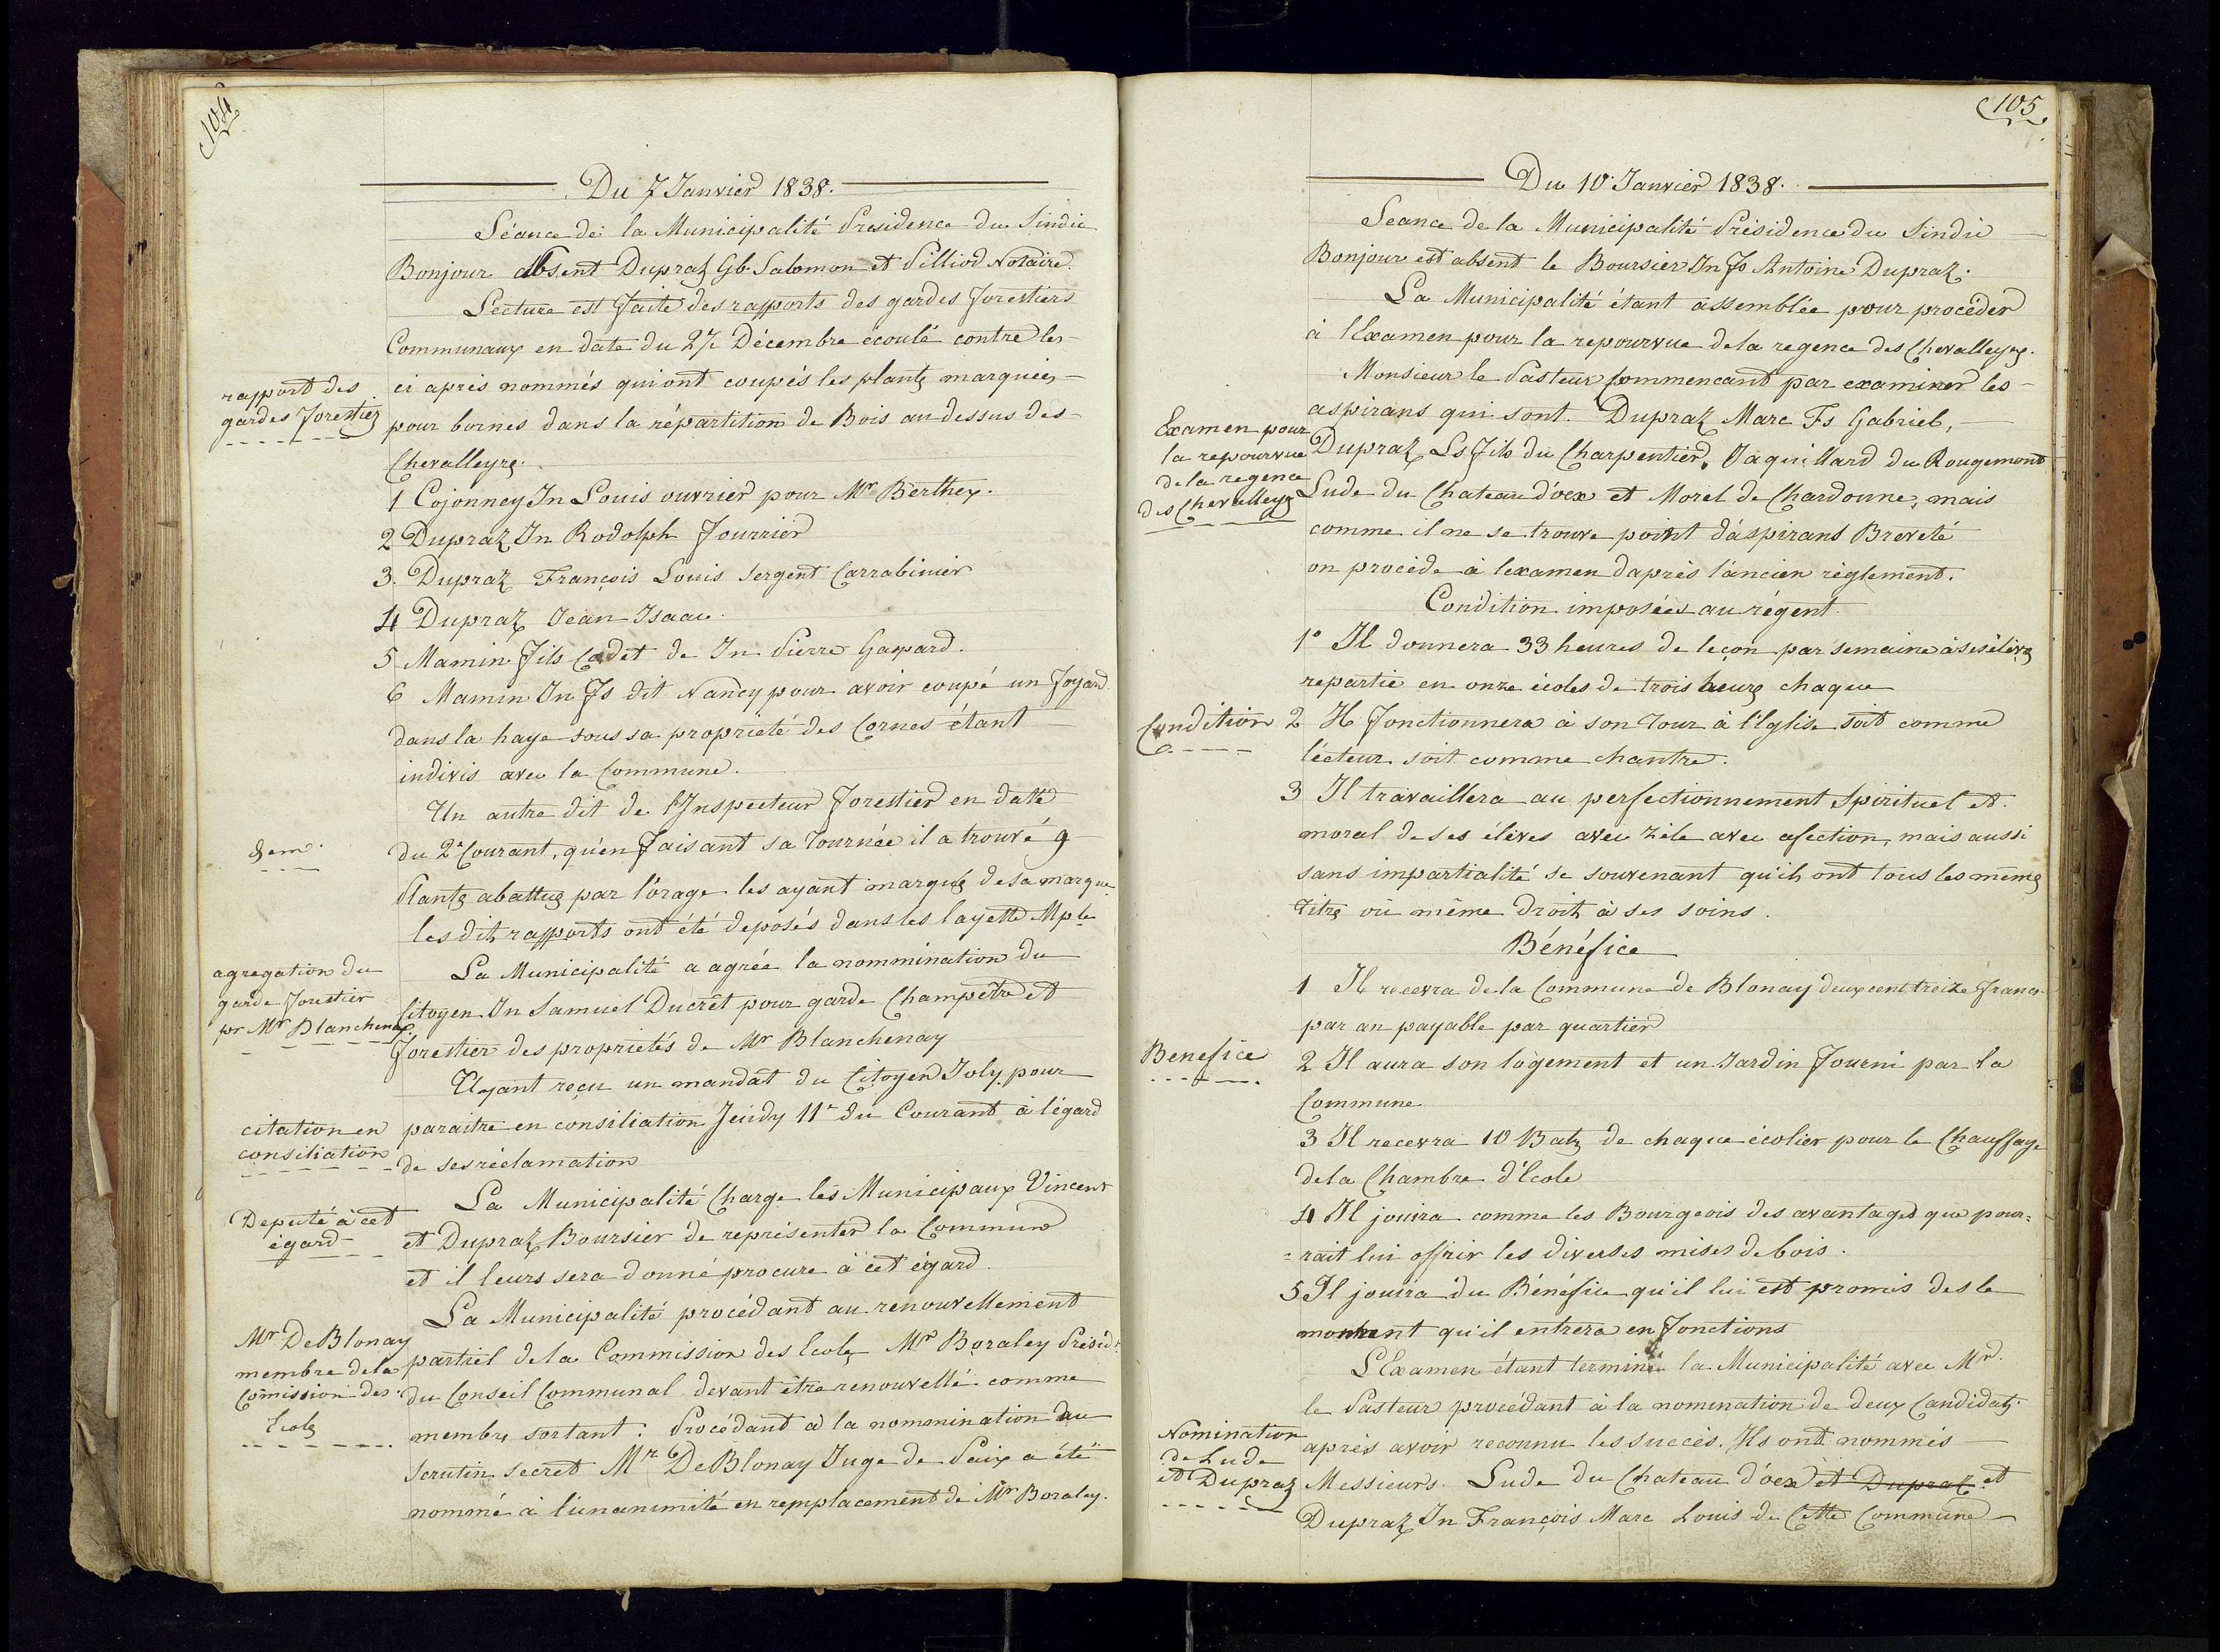 104
Du 7 Janvier 1838.
Séance de la Municipalité Presidence du Sindic
Bonjour absent Dupraz Gb. Salomon et Pilliod Notaire.
Lécture est faite des rapports des gardes forestiers
Communaux en date du 27 Décembre écoulé contre les
rapport des
gardes forestiez
ci après nommés qui ont coupés les plantz marquées
pour bornes dans la répartition de Bois au dessus des
Chevalleyrz.
1 Cojonney Jn Louis ouvrier pour Mr Berthey.
2 Dupraz Jn Rodolph Fourrier
3. Dupraz François Louis Sergent Carrabinier
4 Dupraz Jean Isaac.
5 Mamin fils Cadet de Jn Pierre Gaspard.
6 Mamin Jn Fs dit Nancy pour avoir coupé un foyard
dans la haye sous sa propriété des Cornes étant
indivis avec la Commune.
Un autre dit de l'Inspecteur forestier en date
dem.
du 2e Courant, qu'en faisant sa Tournée il a trouvé 9
Plantz abattuz par l'orage les ayant marquéz de sa marque
les ditz rapports ont été deposés dans les layette Mple
agregation du
garde forestier
pr Mr Blanchenay.
La Municipalité a agrée la nommination du
Citoyen Jn Samuel Ducrêt pour garde Champêtre et
forestier des propriétés de Mr Blanchenay
Ayant reçu un mandat du Citoyen Joly pour
citation en
consiliation
paraitre en consiliation Jeudy 11e du Courant à légard
de ses réclamation
La Municipalité Charge les Municipaux Vincent
Deputé à cet
égard
et Dupraz Boursier de représenter la Commune
et il leurs sera donné procure à cet égard.
La Municipalité procédant au renouvellement
Mr DeBlonay
membre dela
Comission des
Ecolz
partiel de la Commission des Ecolz Mr Boraley Présidt
du Conseil Communal devant être renouvellé comme
membre sortant: Procédant à la nommination au
scrutin secret Mr DeBlonay Juge de Paix a été
nommé à l'unanimité en remplacement de Mr Boraley.
105
Du 10 Janvier 1838.
Séance de la Municipalité Présidence du Sindic
Bonjour est absent le Boursier Jn Fs Antoine Dupraz.
La Municipalité étant assemblée pour procéder
à l'Examen pour la repourvue de la regence des Chevalleyrz.
Monsieur le Pasteur Commencant par examiner les
Examen pour
la repourvue
de la regence
des Chevalleyrz
aspirans qui sont. Dupraz Marc Fs Gabriel,
Dupraz Ls fils du Charpentier, Jaquillard du Rougemont
Lude du Chateau d'oex et Morel de Chardonne, mais
comme il ne se trouve point d'aspirans Breveté
on procède à lexamen daprès l'ancien règlement.
Condition imposées au régent.
1° Il donnera 33 heures de leçon par semaine à ses élèvz
repartie en onze écoles de trois heurz chaque
Condition
2 Il fonctionnera à son Tour à l'Eglise soit comme
lécteur soit comme chantre.
3 Il travaillera au perfectionnement Spirituel et
moral de ses élèves avec zèle avec afection, mais aussi
sans impartialité se souvenant qu'ils ont tous les mêmz
Titrz où même Droitz à ses soins.
Bénéfice
1 Il recevra de la Commune de Blonay deux cent treize francs
par an payable par quartier
Benefice
2 Il aura son logement et un Jardin fourni par la
Commune
3 Il recevra 10 Batz de chaque écolier pour le Chauffage
de la Chambre d'Ecole
4 Il jouira comme les Bourgeois des avantages que pour=
=rait lui offrir les diverses mises de bois.
5 Il jouira du Bénéfice qu'il lui est promis des le
moment qu'il entrera en fonctions
L'Examen étant terminé la Municipalité avec Mr.
le Pasteur procédant à la nomination de deux Candidatz.
Nomination
de Lude
et Dupraz
après avoir reconnu les succès. Ils ont nommés
Messieurs. Lude du Chateau d'oex et Dupraz et
Dupraz Jn François Marc Louis de Cette Commune